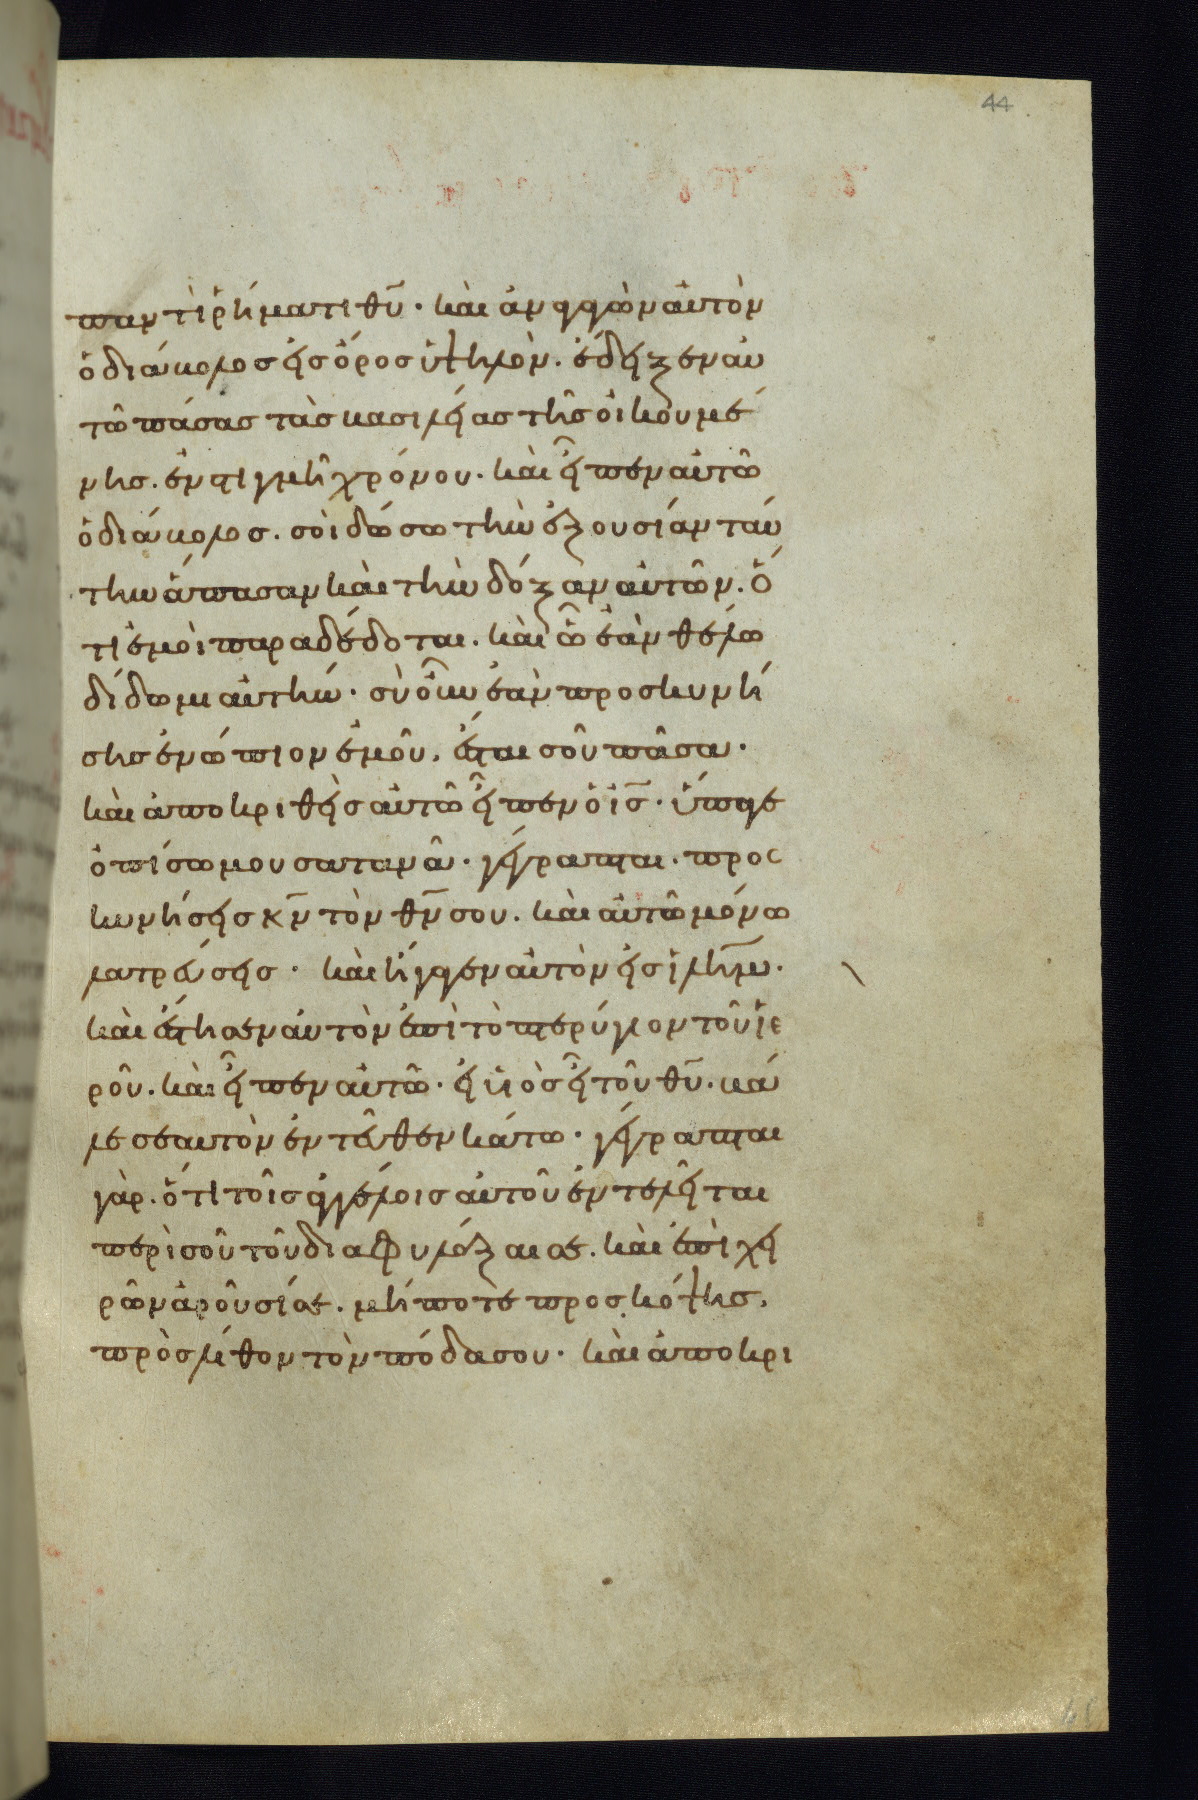 44
παντὶ ῥήματι θῦ · καὶ ἀναγαγὼν αὐτὸν
ὁ διάβολος εἰς ὄρος ὑψηλὸν . ἔδειξεν αὐ
τῶ πάσας τὰς βασιλείας τῆς οἰκουμέ
νης . ἐν στιγμῆ χρόνου · καὶ εἶπεν αὐτῶ
ὁ διάβολος . σοὶ δώσω τὴν ἐξουσίαν ταύ
την ἅπασαν καὶ τὴν δόξαν αὐτῶν . ὅ
τι ἐμοὶ παραδέδοται . καὶ ὧ ἐὰν θέλω
δίδωμι αὐτήν · σὺ οὖν ἐὰν προσκυνή
σης ἐνώπιον ἐμοῦ , ἔσται σοῦ πᾶσα ·
καὶ ἀποκριθεὶς αὐτῶ εἶπεν ὁ ἰς̄ · ὕπαγε
ὀπίσω μου σατανᾶ · γέγραπται · προσ
κυνήσεις κν̄ τὸν θν̄ σου . καὶ αὐτῶ μόνω
λατρεύσεις · καὶ ἤγαγεν αὐτὸν εἰς ἰλῆμ .
καὶ ἔστησεν αὐτὸν ἐπὶ τὸ πτερύγιον τοῦ ἱε
ροῦ . καὶ εἶπεν αὐτῶ · εἰ υἱὸς εἶ τοῦ θῦ . βά
λε σεαυτὸν ἐντεῦθεν κάτω · γέγραπται
γὰρ . ὅτι τοῖς ἀγγέλοις αὐτοῦ ἐντελεῖται
περὶ σοῦ τοῦ διαφυλάξαι σε . καὶ ἐπὶ χει
ρῶν ἀροῦσί σε . μήποτε προσκόψης ,
πρὸς λίθον τὸν πόδα σου · καὶ ἀποκρι